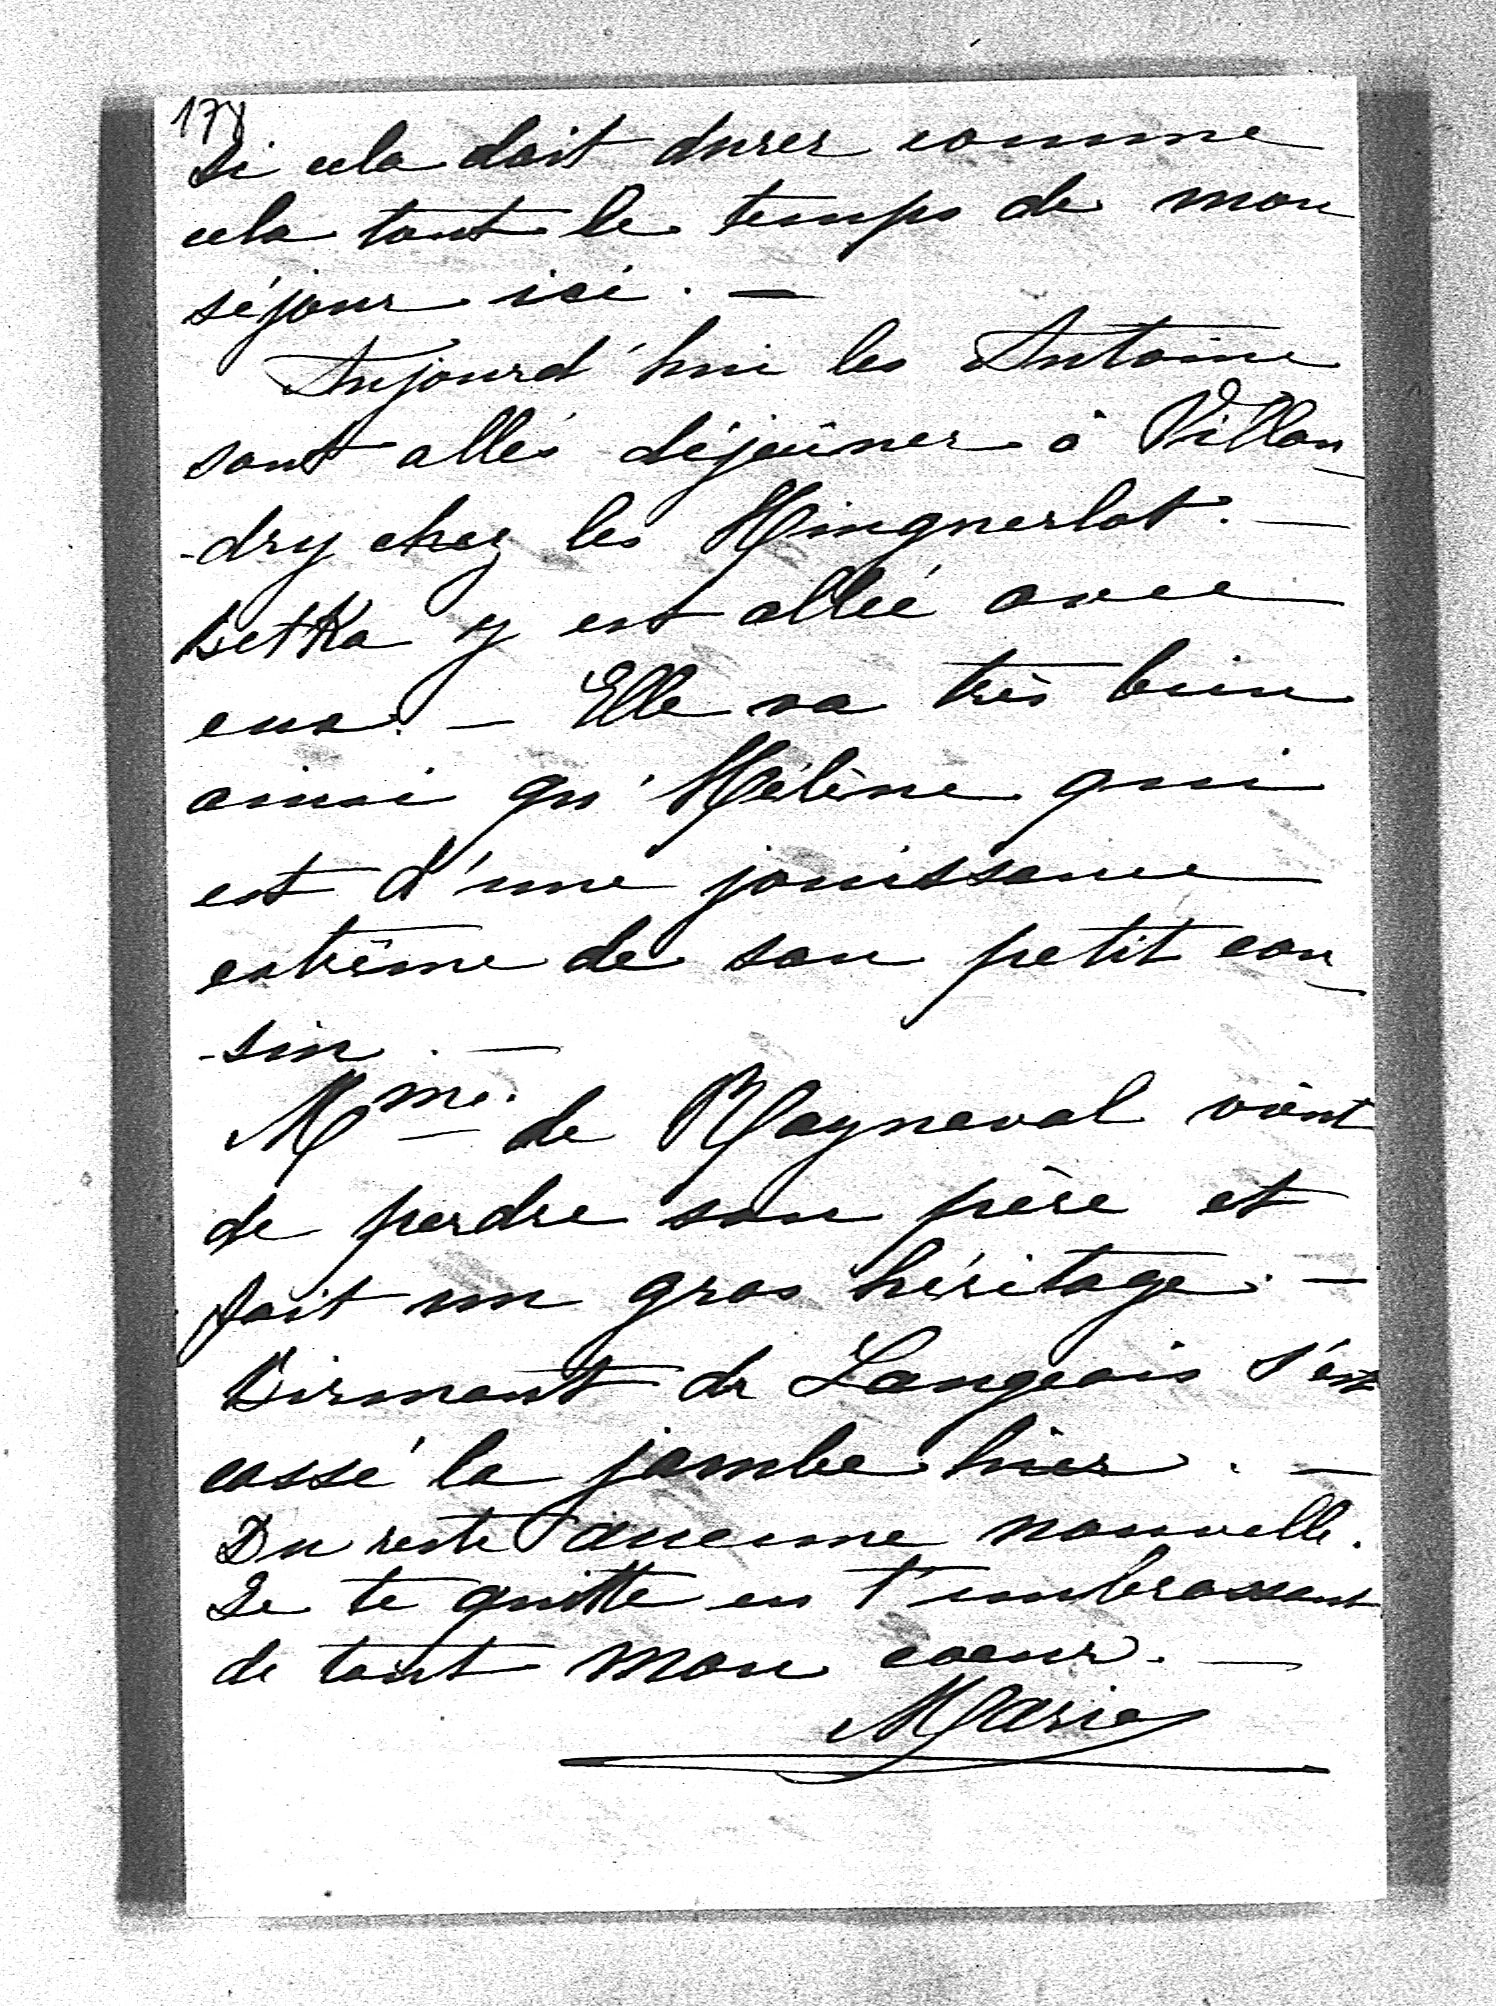 178
si cela doit durer comme
cela tout le temps de mon
séjour ici. —
Aujourd'hui les Antoine
sont allés déjeûner à Villan_
-dry chez les Hinguerlot. —
Betka y est allée avec
eux. — Elle va très bien
ainsi qu'Hélène qui
est d'une jouissance
extrême de son petit cou_
-sin. —
Mme. de Rayneval vient
de perdre son père et
fait un gros héritage. —
de Langeais s'est
cassé la jambe hier. —
Du reste aucune nouvelle.
Je te quitte en t'embrassant
de tout mon coeur. —
Marie